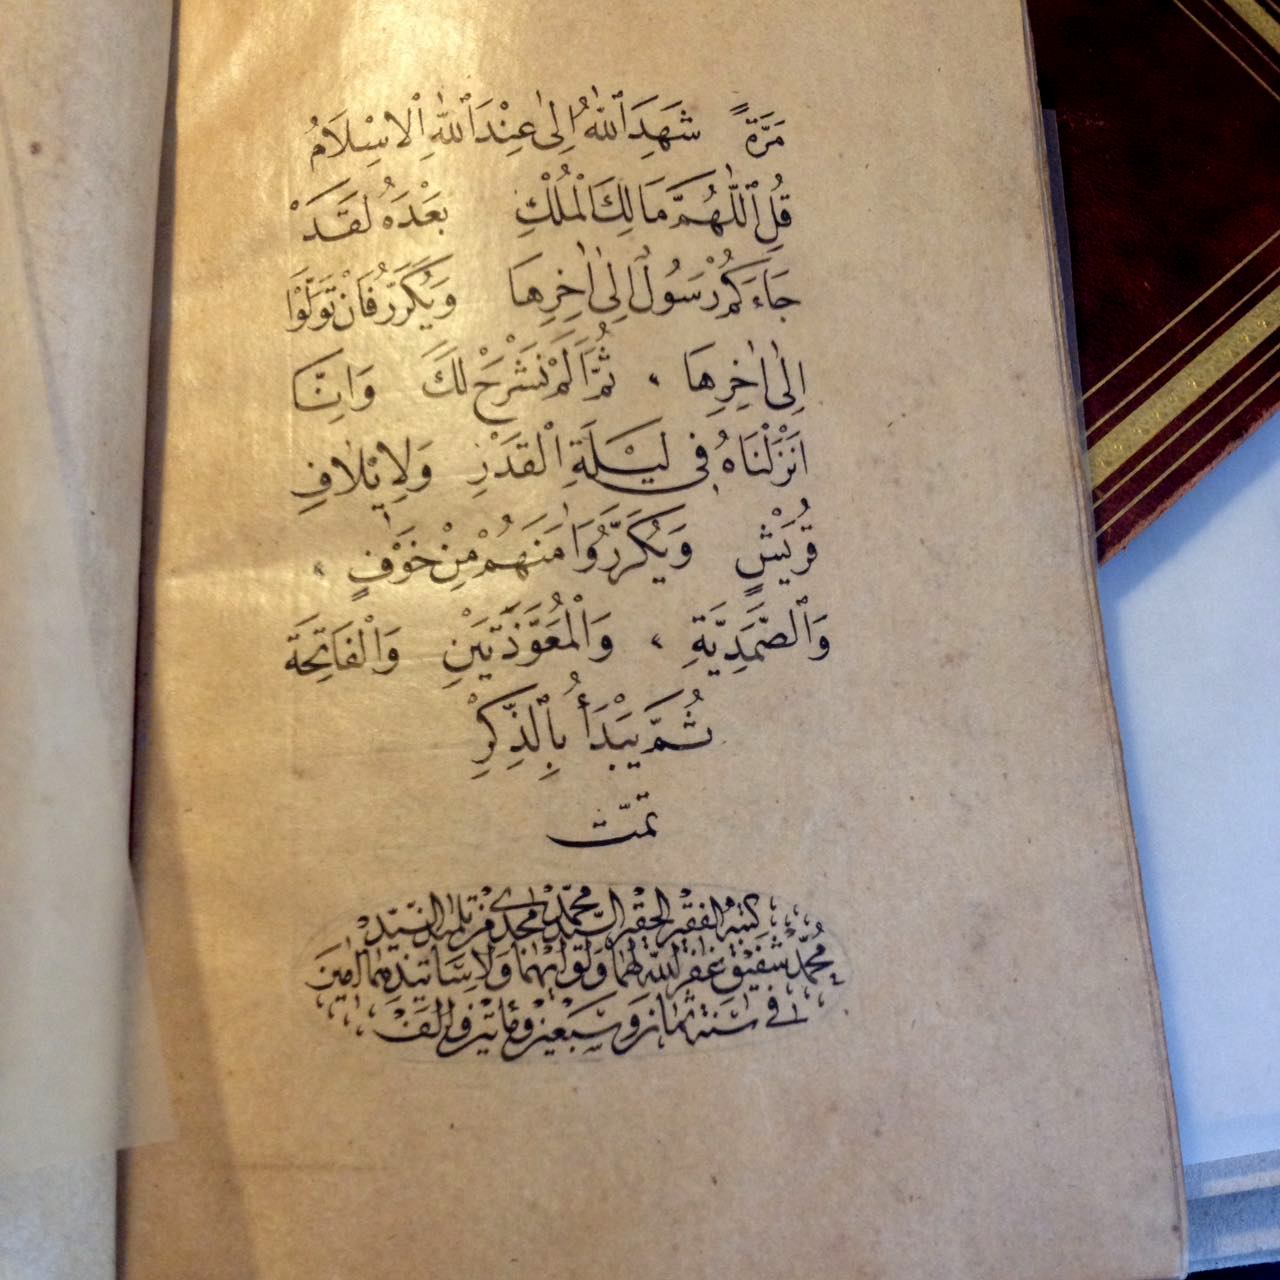 مَرَّةً شَهِدَ ٱللّٰهُ اِلٰى عِنْدَ ٱللّٰهِ ٱلْاِسْلَامُ
قُلِ ٱللّٰهُمَّ مَالِكَ الْمُلْكِ بَعْدَهُ لَقَدْ
جَاءَكُمْ رَسُولٌ اِلٰى اٰخِرِهَا وَيُكَرِّرُ فَاِنْ تَوَلَّوْا
اِلٰى اٰخِرِهَا ، ثُمَّ اَلَمْ نَشْرَحْ لَكَ وَاِنَّا
اَنْزَلْنَاهُ فِى لَيْلَةِ الْقَدْرِ وَلِاِيْلَافِ
قُرَيْشٍ وَيُكَرِّرُ وَاٰمَنَهُمْ مِنْ خَوْفٍ ،
وَٱلصَّمَدِيَّةِ ، وَالْمُعَوَّذَتَيْنِ وَالْفَاتِحَةَ
ثُمَّ يَبْدَأُ بِالذِّكْرِ
تمّت
كتبه الفقير الحقير السيّد محمّد من تلاميذ السّيّد
محمّد شفيق غفر الله لهما ولابويهما ولاساتيذهما اٰمين
فى سنة ثمان وسبعين ومأتين والف